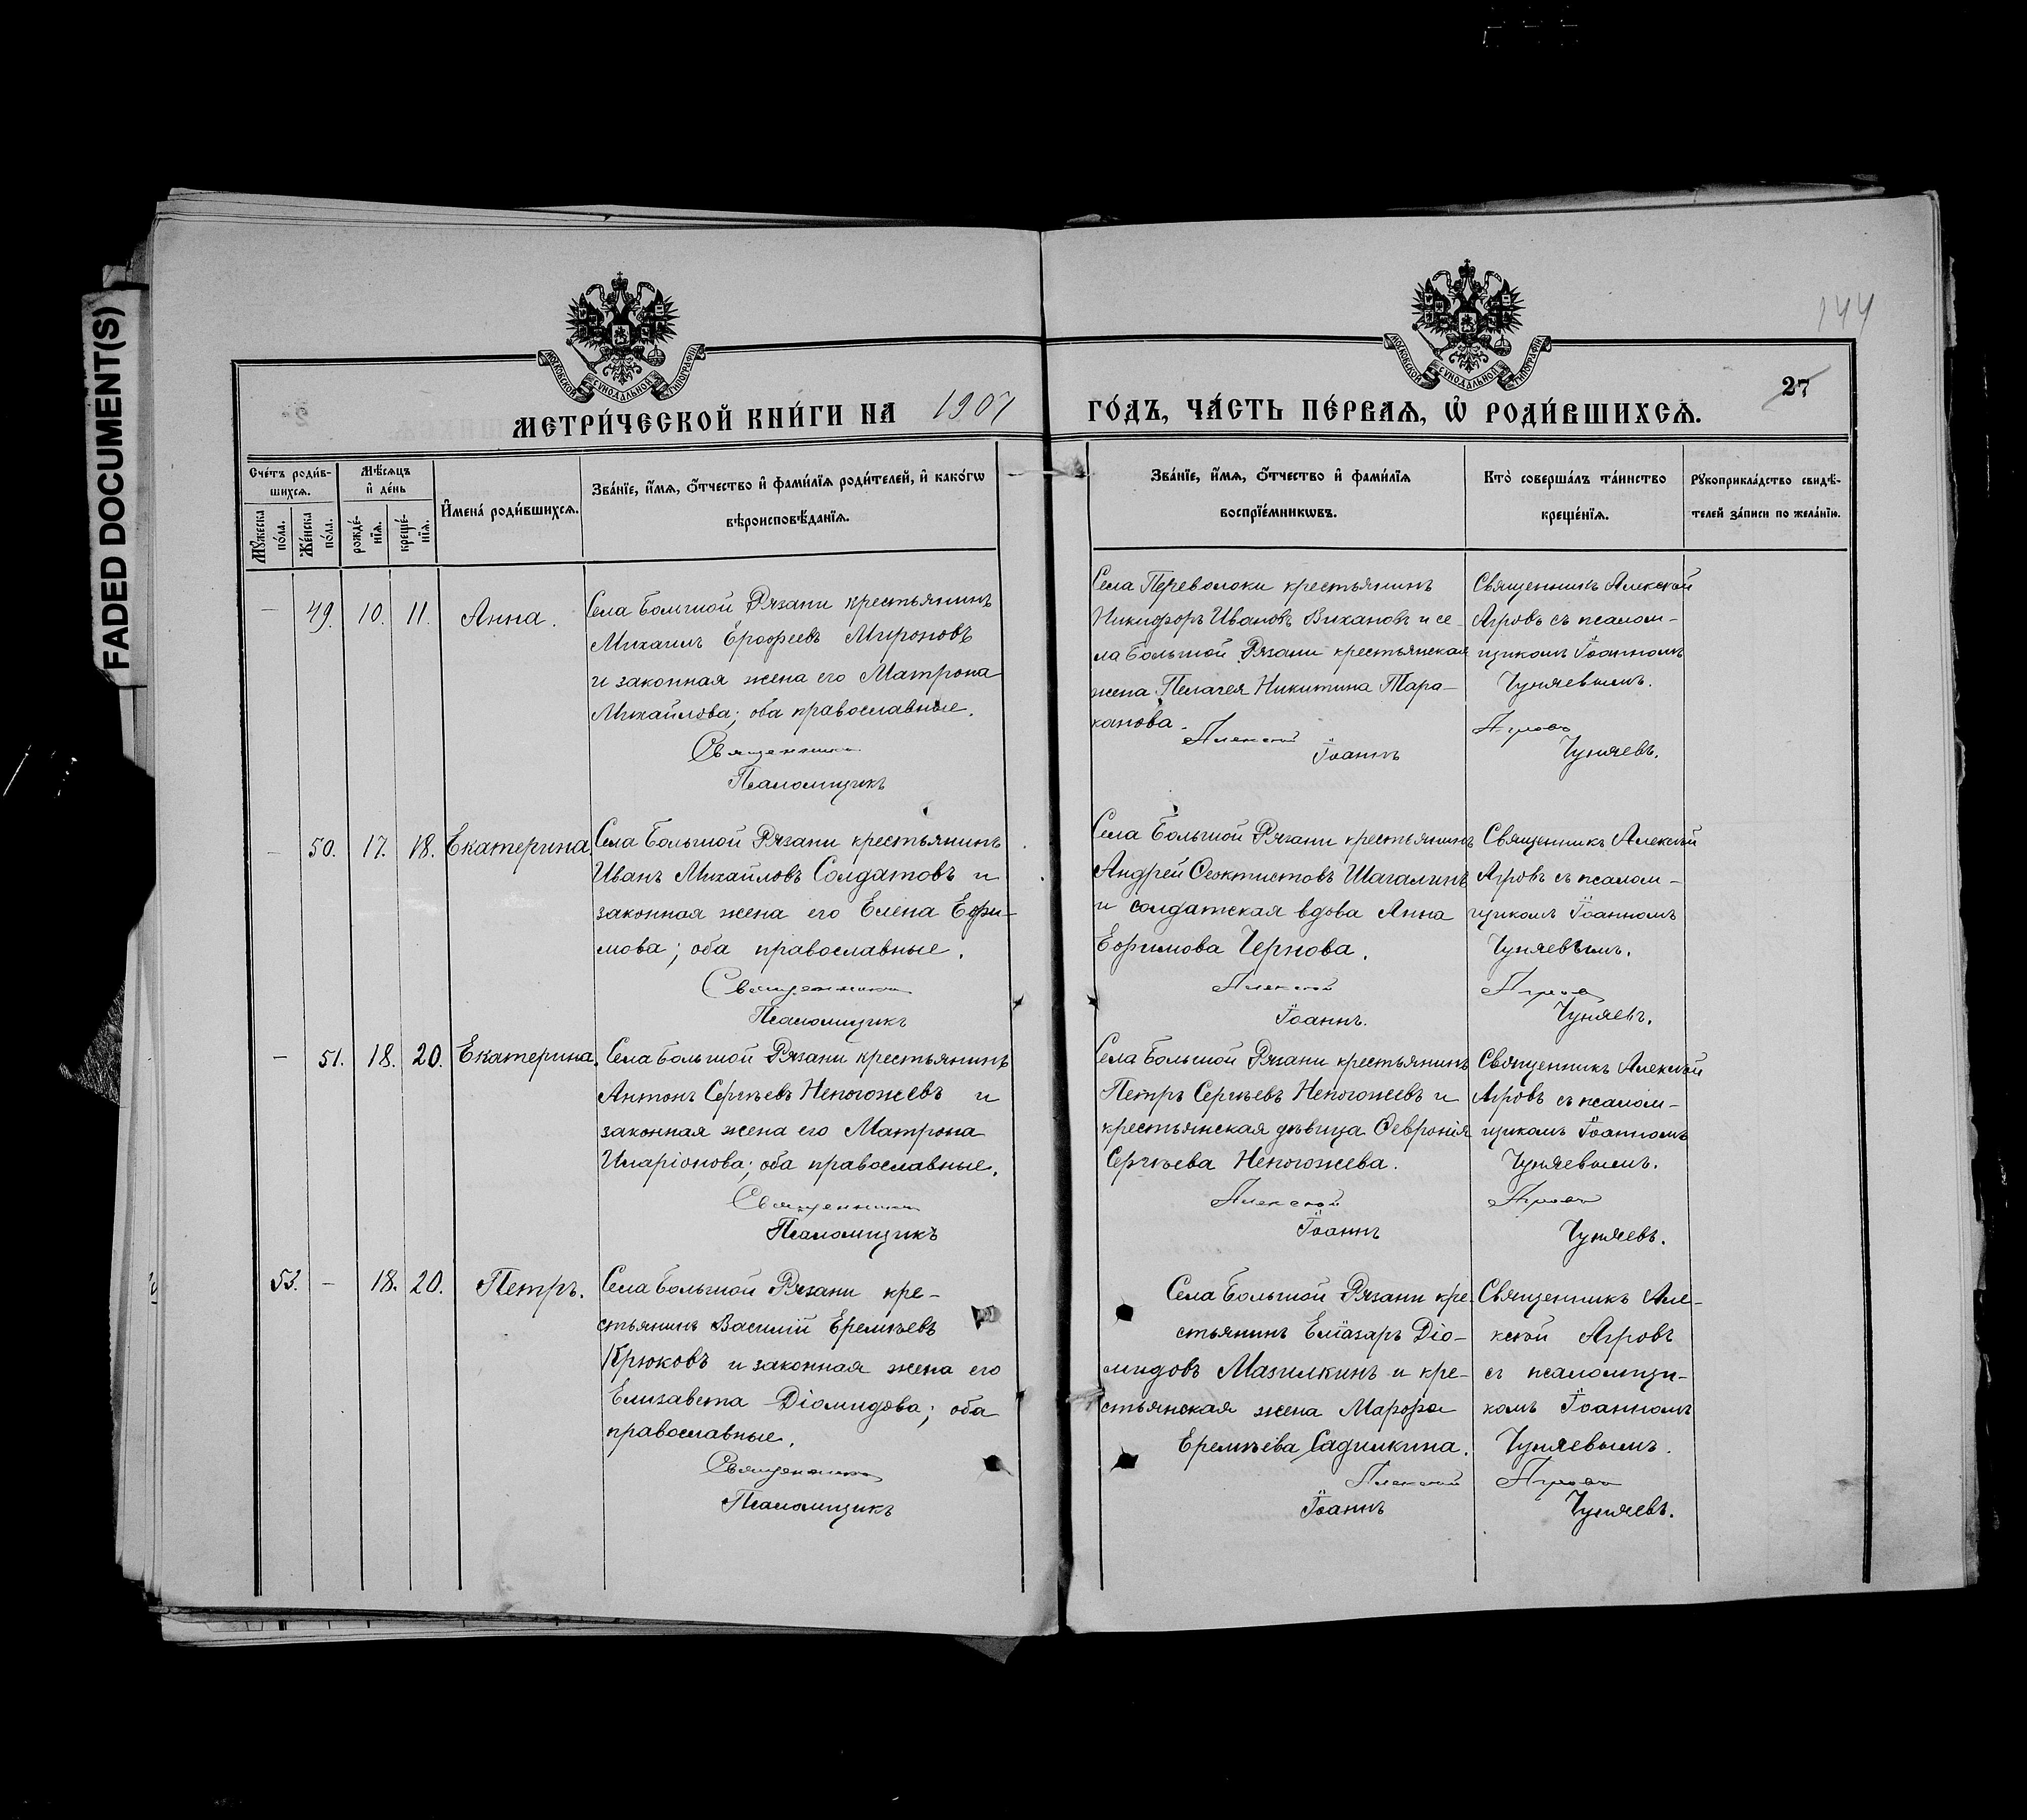 FADED DOCUMENT(S)
144
27
МОСКОВСКОЙ СѴНОДАЛЬНОЙ ТИПОГРАФІИ
МОСКОВСКОЙ СѴНОДАЛЬНОЙ ТИПОГРАФІИ
МЕТРИ́ЧЕСКОЙ КНИ́ГИ НА 1907 ГО́ДЪ, ЧА́СТЬ ПЕ́РВАѦ, Ѡ҆ РОДИ́ВШИХСѦ.
Сче́тъ роди́в-
шихсѧ.
Мꙋ́жеска
по́ла.
Же́нска
по́ла.
Мѣ́сѧцъ
и҆ де́нь
рожде́-
нїѧ.
креще́-
нїѧ.
И҆мена̀ роди́вшихсѧ.
Зва́нїе, и҆́мѧ, ѻ҆́тчество и҆ фами́лїѧ роди́телей, и҆ како́гѡ
вѣроисповѣ́данїѧ.
Зва́нїе, и҆́мѧ, ѻ҆́тчество и҆ фами́лїѧ
воспрїе́мникѡвъ.
Кто̀ соверша́лъ та́инство
креще́нїѧ.
Рꙋкоприкла́дство свидѣ́-
телей за́писи по жела́нїю.
— 49. 10. 11. Анна.
Села Большой Рязани крестьянинъ
Михаилъ Ерофеевъ Мироновъ
и законная жена его Матрона
Михайлова; оба православные.
Священникъ
Псаломщикъ
Села Переволоки крестьянинъ
Никифоръ Ивановъ Вихановъ и се-
ла Большой Рязани крестьянская
жена Пелагея Никитина Тара-
канова.
Алексѣй
Іоаннъ
Священникъ Алексѣй
Агровъ съ псалом-
щикомъ Іоанномъ
Чуняевымъ.
Агровъ
Чуняевъ.
— 50. 17. 18. Екатерина
Села Большой Рязани крестьянинъ
Иванъ Михайловъ Солдатовъ и
законная жена его Елена Ефи-
мова; оба православные.
Священникъ
Псаломщикъ
Села Большой Рязани крестьянинъ
Андрей Ѳеоктистовъ Шагалинъ
и солдатская вдова Анна
Ефимова Чернова.
Алексѣй
Іоаннъ.
Священникъ Алексѣй
Агровъ съ псалом-
щикомъ Іоанномъ
Чуняевымъ.
Агровъ
Чуняевъ.
— 51. 18. 20. Екатерина.
Села Большой Рязани крестьянинъ
Антонъ Сергѣевъ Непогожевъ и
законная жена его Матрона
Иларіонова; оба православные.
Священникъ
Псаломщикъ
Села Большой Рязани крестьянинъ
Петръ Сергѣевъ Непогожевъ и
крестьянская дѣвица Ѳевронія
Сергѣева Непогожева.
Алексѣй
Іоаннъ
Священникъ Алексѣй
Агровъ съ псалом-
щикомъ Іоанномъ
Чуняевымъ.
Агровъ
Чуняевъ.
53. — 18. 20. Петръ.
Села Большой Рязани кре-
стьянинъ Василій Еремѣевъ
Крюковъ и законная жена его
Елизавета Діомидова; оба
православные.
Священникъ
Псаломщикъ
Села Большой Рязани кре-
стьянинъ Еліазаръ Діо-
мидовъ Мазилкинъ и кре-
стьянская жена Марфа
Еремѣева Садилкина.
Алексѣй
Іоаннъ
Священникъ Але-
ксѣй Агровъ
съ псаломщи-
комъ Іоанномъ
Чуняевымъ.
Агровъ
Чуняевъ.